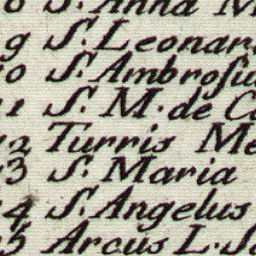 S. Anna M
9 S. Leonar
0 S. Ambrosiu
1 S. M. de C
2 Turris Me
3 S. Maria
4 S. Angelus
5 Arcus L. S